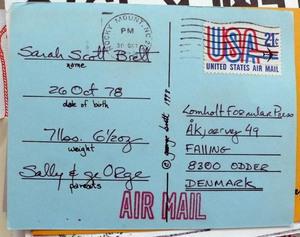 Sarah Scott Brett
name
26 Oct 78
date of birth
7 lbs. 6½ oz
weight
Sally & geORge
parents
ROCKY MOUNT, NC
PM
30 OCT
USA 21c
UNITED STATES AIR MAIL
© george brett 1978
Lomholt Formular Press
Åkjaervej 49
FALLING
8300 ODDER
DENMARK
AIR MAIL